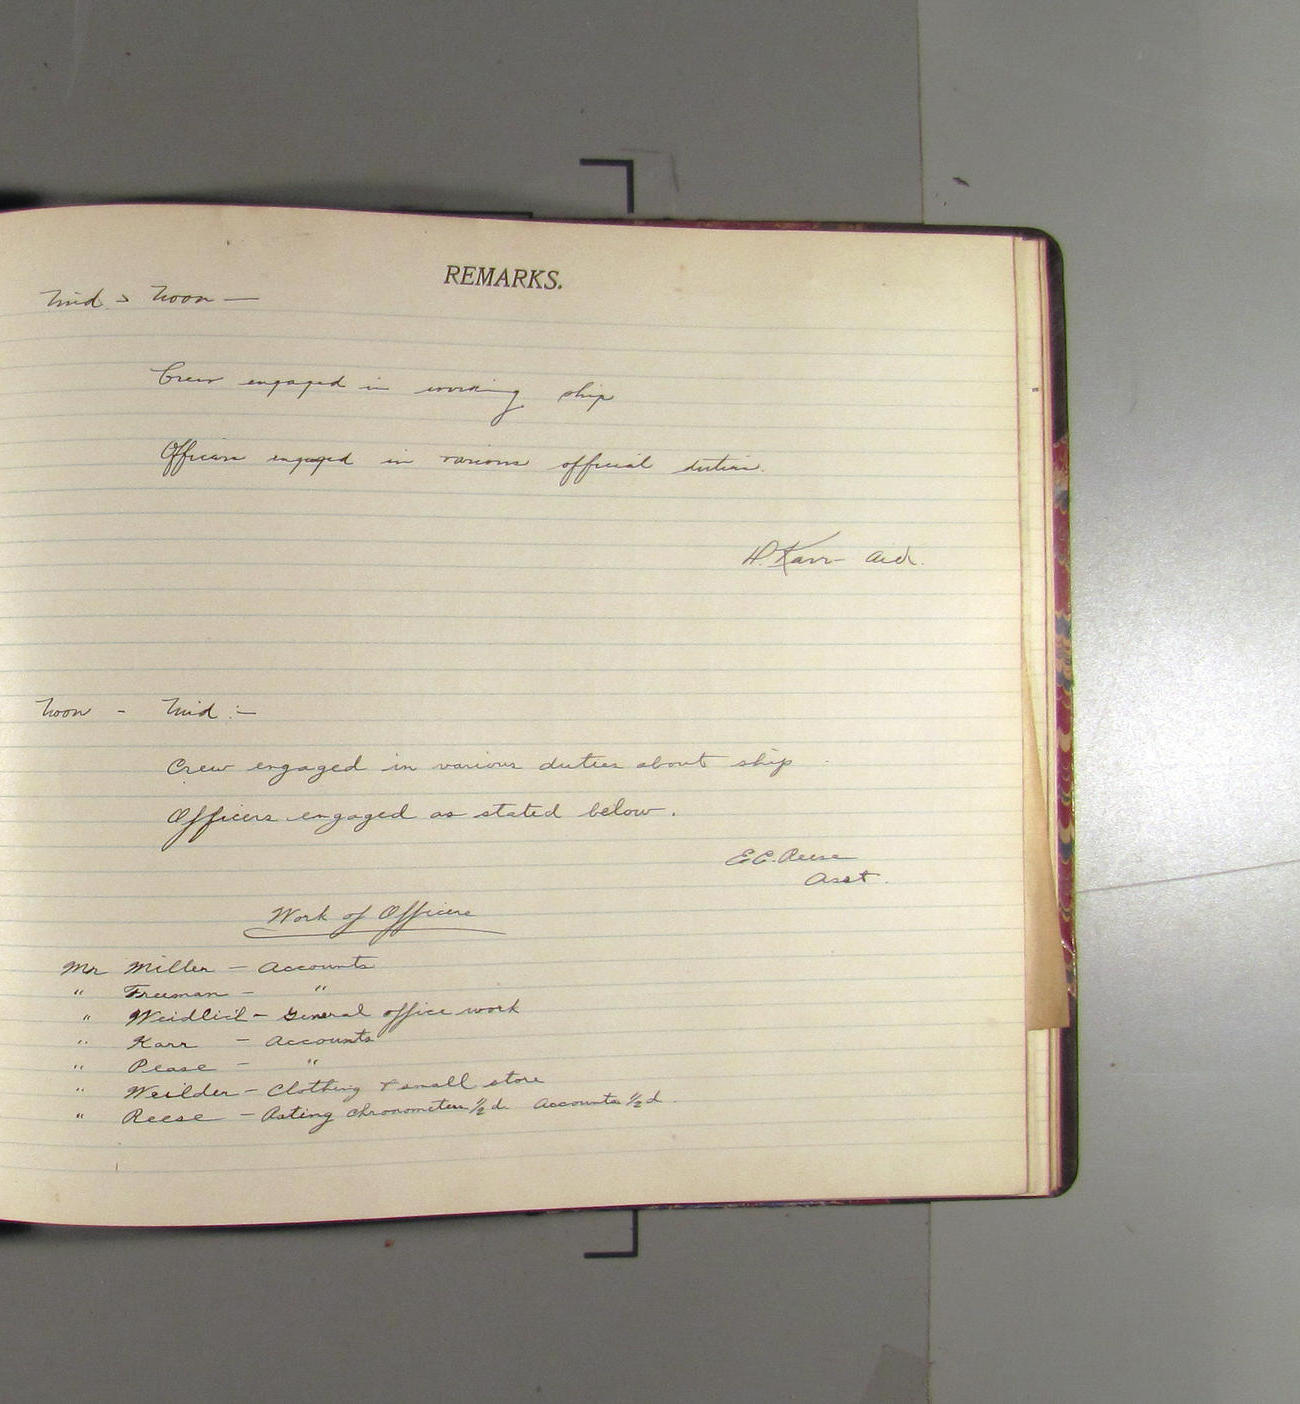 REMARKS.
Mid > Noon —
Crew engaged in working ship
Officers engaged in various official duties.
H. Karr Aid.
Noon - Mid :-
Crew engaged in various duties about ship
Officers engaged as stated below.
E.E. Reese
Asst.
Work of Officers
Mr Miller - Accounts
" Freeman - "
" Weidlich - General office work
" Karr - Accounts
" Pease - "
" Weilder - Clothing & small store
" Reese - Rating chronometers 1/2 d. Accounts 1/2 d.